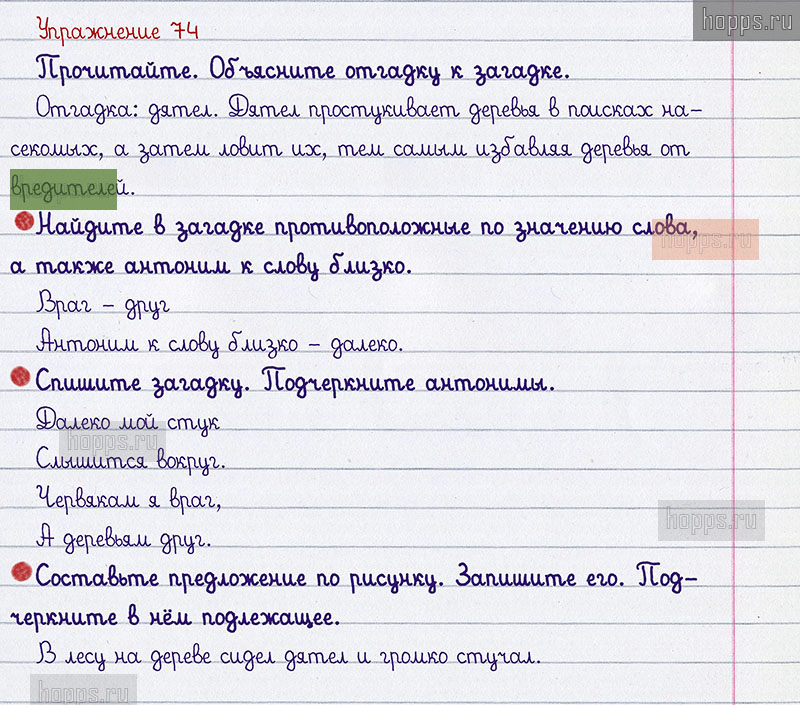 hopps.ru
Упражнение 74
Прочитайте. Объясните отгадку к загадке.
Отгадка: дятел. Дятел простукивает деревья в поисках на-
секомых, а затем ловит их, тем самым избавляя деревья от
вредителей.
Найдите в загадке противоположные по значению слова,
hopps.ru
а также антоним к слову близко.
Враг – друг
Антоним к слову близко – далеко.
Спишите загадку. Подчеркните антонимы.
Далеко мой стук
hopps.ru
Слышится вокруг.
Червякам я враг,
hopps.ru
А деревьям друг.
Составьте предложение по рисунку. Запишите его. Под-
черкните в нём подлежащее.
В лесу на дереве сидел дятел и громко стучал.
hopps.ru